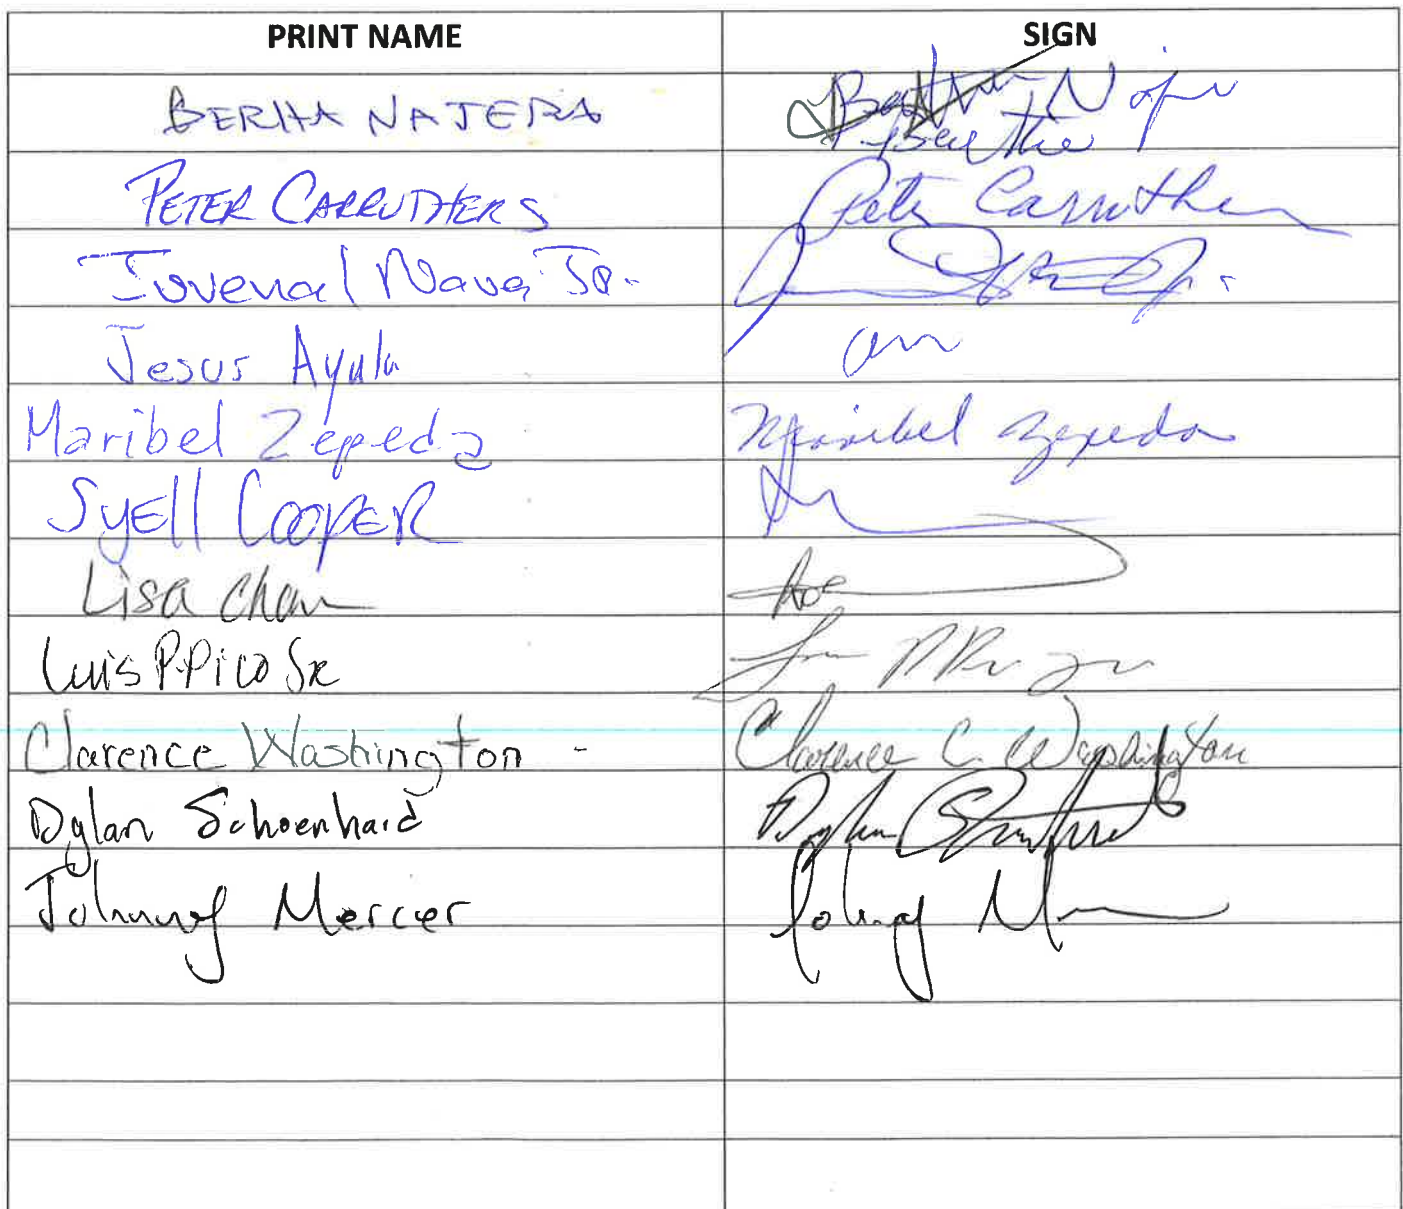 PRINT NAME SIGN
BERTHA NAJERA
PETER CARRUTHERS Peter Carruthers
Juvenal Nava Jr.
Jesus Ayala
Maribel Zepeda Maribel Zepeda
SYEll COOPER
Lisa Chan
Luis P. Pico Sr
Clarence Washington - Clarence C. Washington
Dylan Schoenhard Dylan
Johnny Mercer Johnny